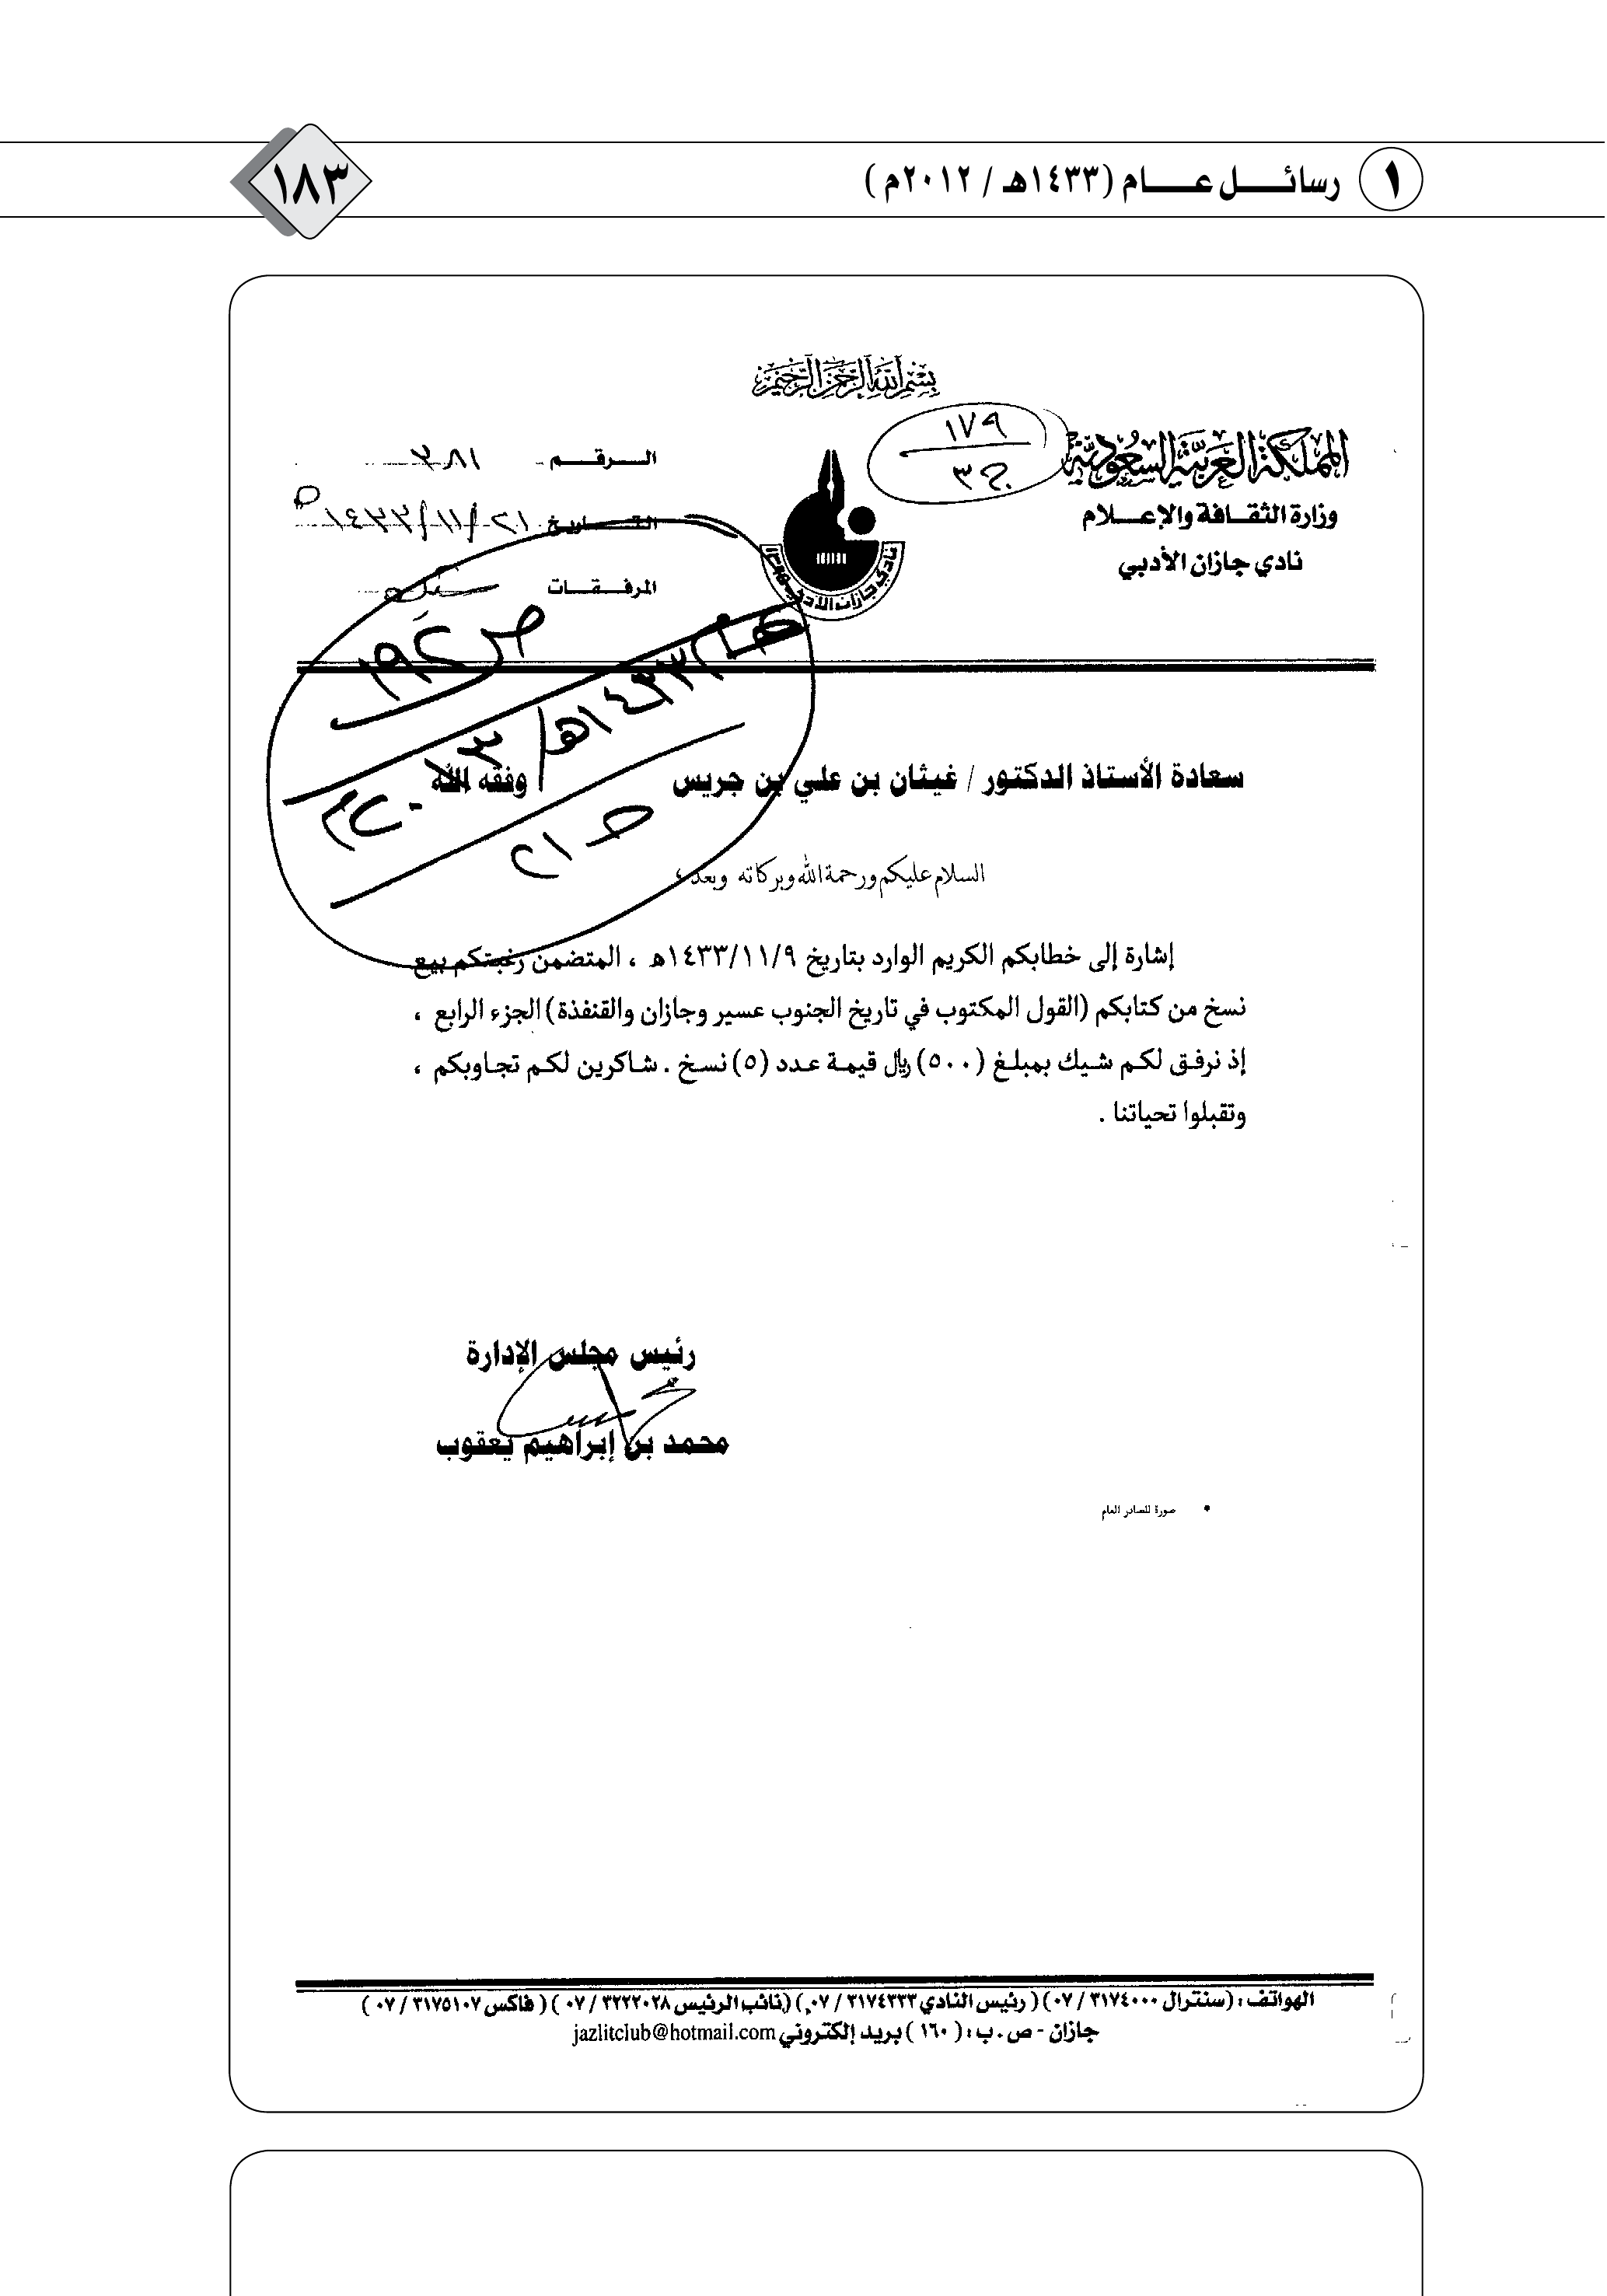 ١ رسائل عام (١٤٣٣هـ / ٢٠١٢م)
١٨٣
بسم الله الرحمن الرحيم
١٧٩
ج ٣
المملكة العربية السعودية
وزارة الثقافة والإعلام
نادي جازان الأدبي
الرقم ٣٨١
التاريخ ٢١/١١/١٤٣٣هـ
المرفقات شيك
نادي جازان الأدبي
١٣٩٥هـ
١٤٣٣هـ / ٢٠١٢م
سعادة الأستاذ الدكتور / غيثان بن علي بن جريس وفقه الله
السلام عليكم ورحمة الله وبركاته وبعد ،
إشارة إلى خطابكم الكريم الوارد بتاريخ ١٤٣٣/١١/٩هـ ، المتضمن رغبتكم بيع
نسخ من كتابكم (القول المكتوب في تاريخ الجنوب عسير وجازان والقنفذة) الجزء الرابع ،
إذ نرفق لكم شيك بمبلغ (٥٠٠) ريال قيمة عدد (٥) نسخ . شاكرين لكم تجاوبكم ،
وتقبلوا تحياتنا .
رئيس مجلس الإدارة
محمد بن إبراهيم يعقوب
• صورة للصادر العام
الهواتف : (سنترال ٣١٧٤٠٠٠ / ٠٧) ( رئيس النادي ٣١٧٤٣٣٣ / ٠٧) (نائب الرئيس ٣٢٢٢٠٢٨ / ٠٧ ) ( فاكس ٣١٧٥١٠٧ / ٠٧ )
جازان - ص . ب : ( ١٦٠ ) بريد إلكتروني jazlitclub@hotmail.com